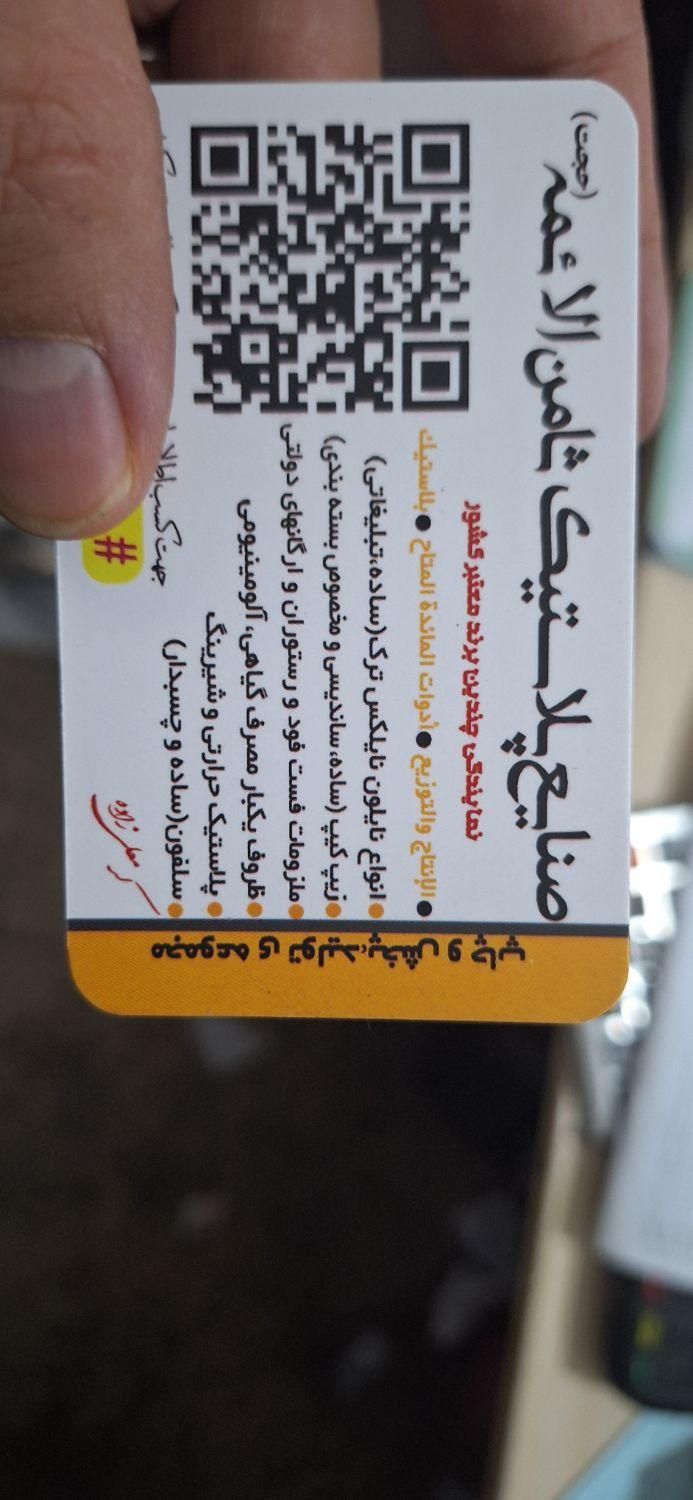 صنایع پلاستیک ثامن الائمه (حجت)
نمایندگی چندین برند معتبر کشور
● الإنتاج والتوزيع ● أدوات المائدة المتاح ● بلاستيك
● انواع نایلون نایلکس ترک (ساده، تبلیغاتی)
● زیپ کیپ (ساده، ساندیسی و مخصوص بسته بندی)
● ملزومات فست فود و رستوران و ارگانهای دولتی
● ظروف یکبار مصرف گیاهی، آلومینیومی
● پلاستیک حرارتی و شیرینگ
● سلفون (ساده و چسبدار)
جهت کسب اطلا
#
مجموعه ی تولید، پخش و چاپ